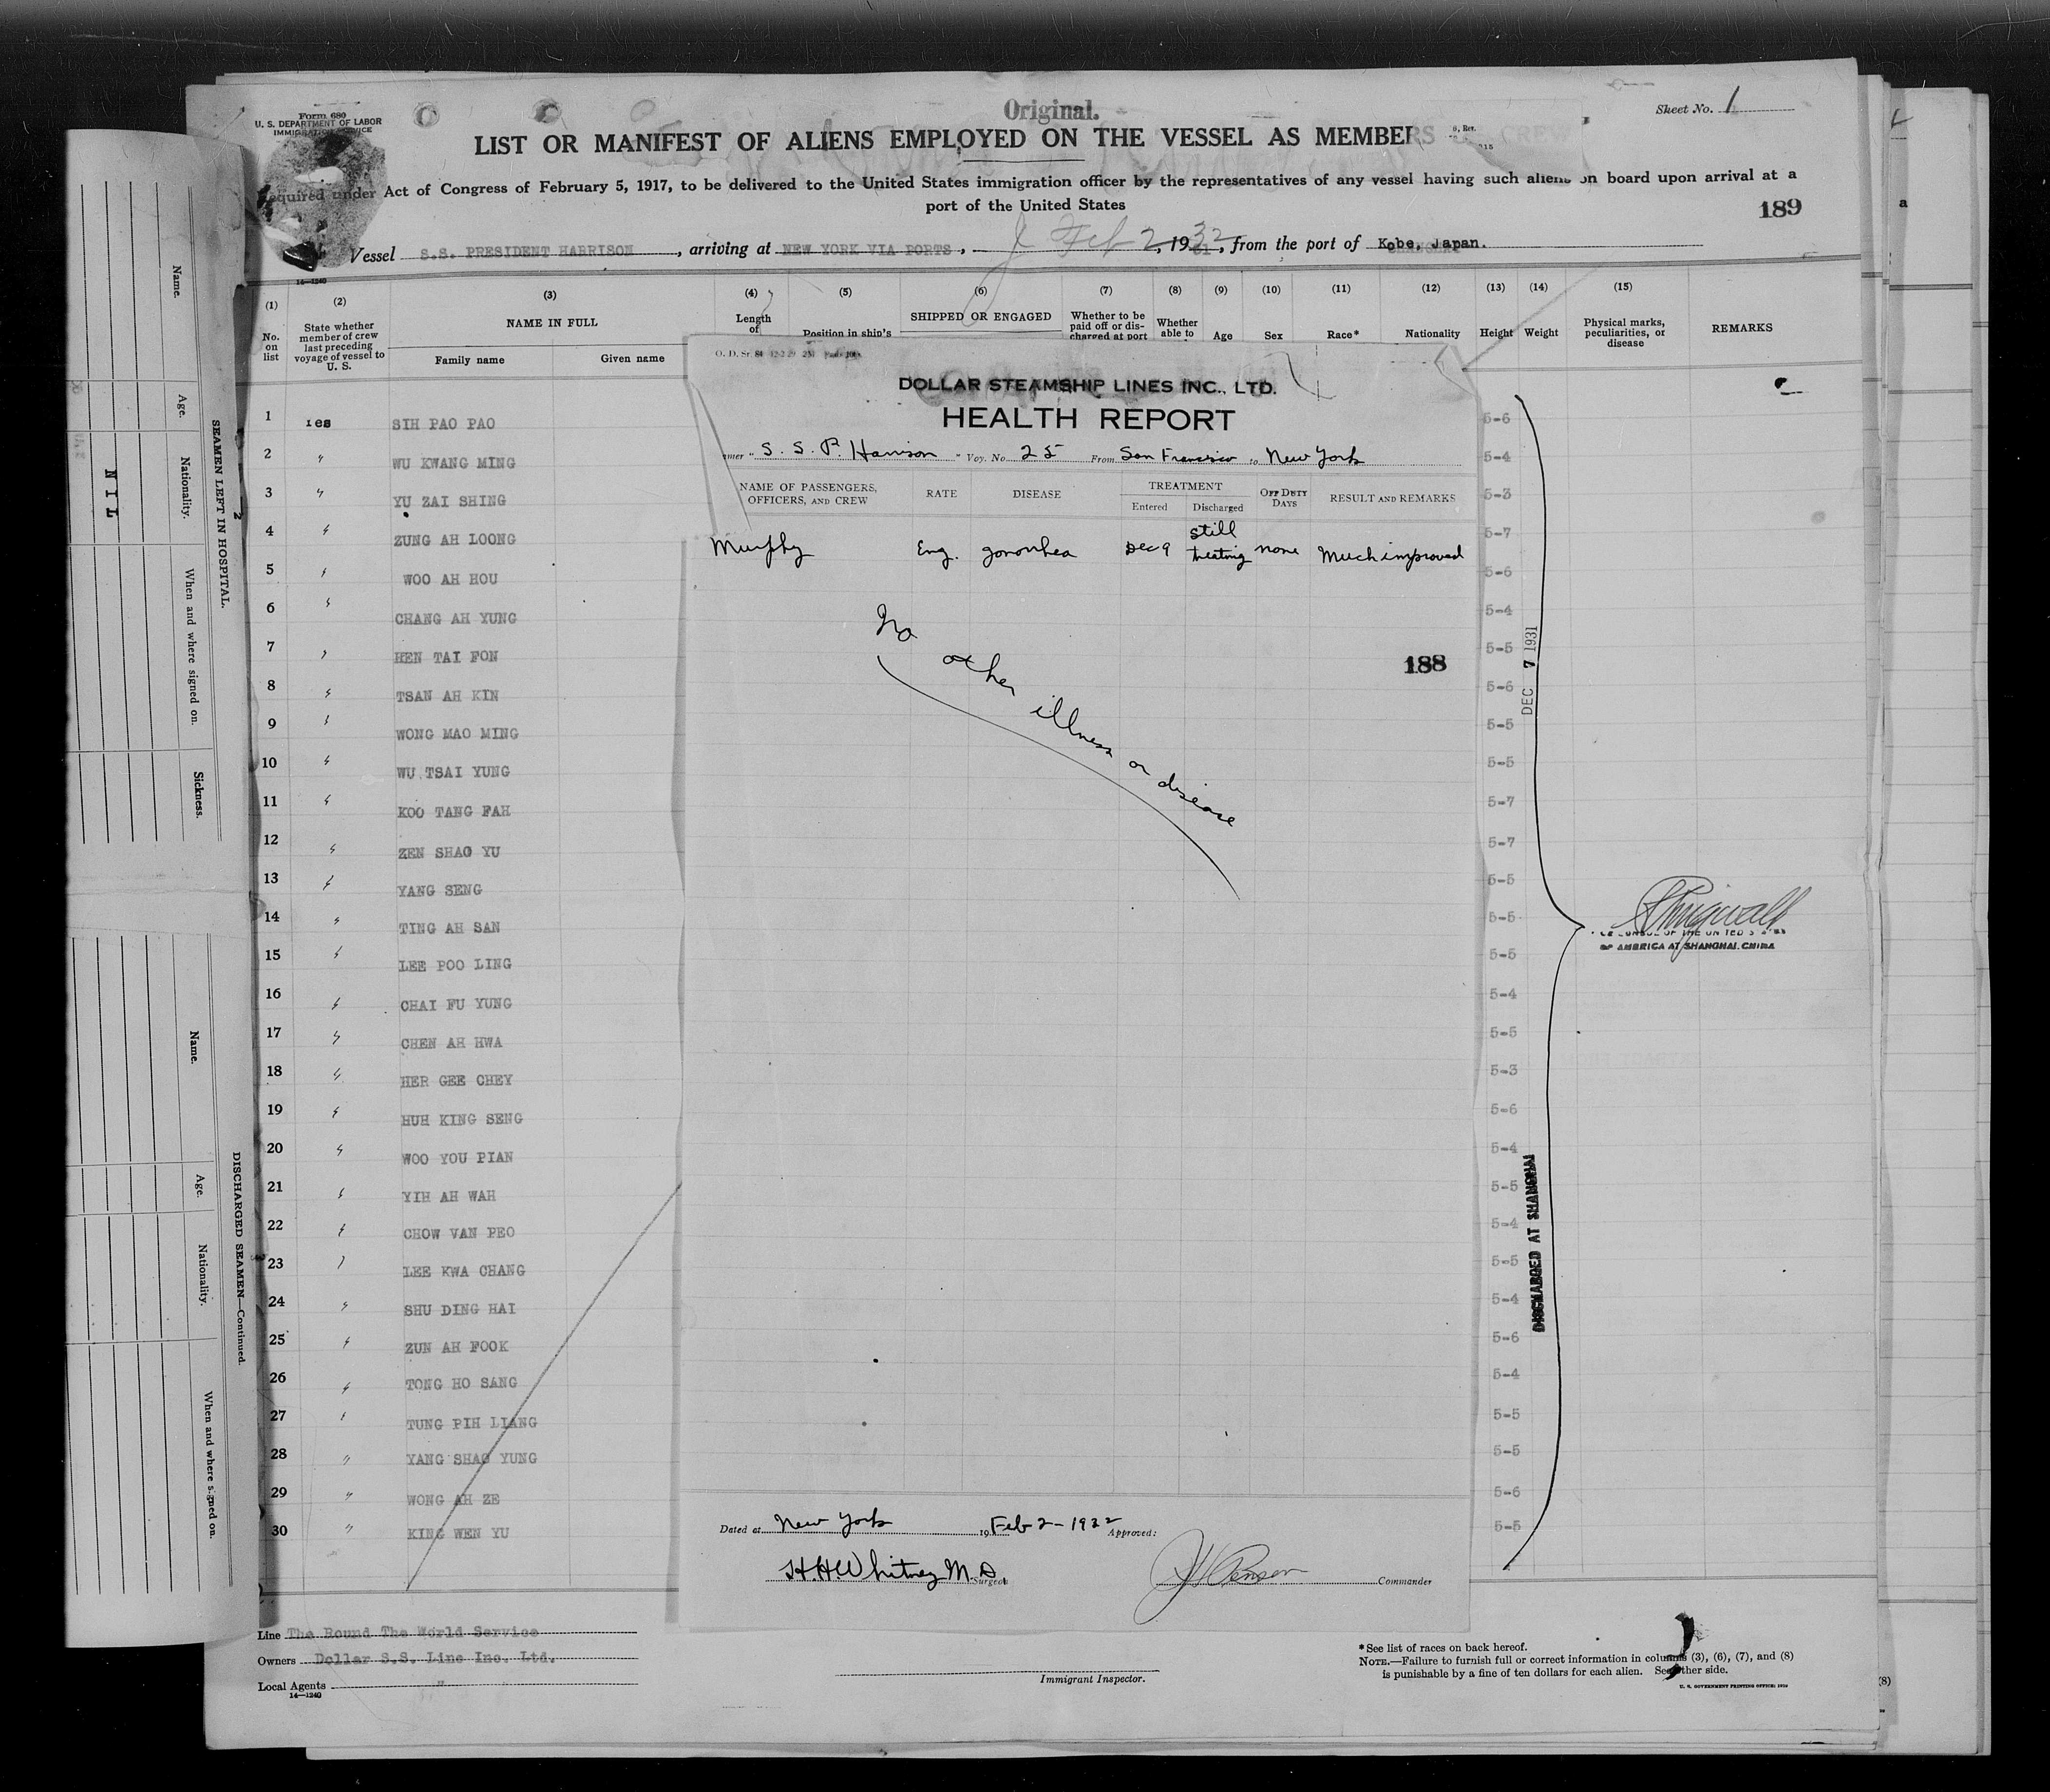 Original.
Form 680
U. S. DEPARTMENT OF LABOR
IMMIGRATION SERVICE
Sheet No. 1
LIST OR MANIFEST OF ALIENS EMPLOYED ON THE VESSEL AS MEMBERS CREW
Required under Act of Congress of February 5, 1917, to be delivered to the United States immigration officer by the representatives of any vessel having such aliens on board upon arrival at a
port of the United States
189
Vessel S.S. PRESIDENT HARRISON, arriving at NEW YORK VIA PORTS, Feb 2, 1932, from the port of Kobe, Japan.
14—1240
(1) (2) (3) (4) (5) (6) (7) (8) (9) (10) (11) (12) (13) (14) (15)
No. on list
State whether member of crew last preceding voyage of vessel to U. S.
NAME IN FULL
Family name Given name
Length of
Position in ship's
SHIPPED OR ENGAGED
Whether to be paid off or discharged at port
Whether able to
Age
Sex
Race*
Nationality
Height
Weight
Physical marks, peculiarities, or disease
REMARKS
1 Yes SIH PAO PAO 5-6
2 " WU KWANG MING 5-4
3 " YU ZAI SHING 5-3
4 " ZUNG AH LOONG 5-7
5 " WOO AH HOU 5-6
6 " CHANG AH YUNG 5-4
7 " HEN TAI FON 5-5
8 " TSAN AH KIN 5-6
9 " WONG MAO MING 5-5
10 " WU TSAI YUNG 5-5
11 " KOO TANG FAH 5-7
12 " ZEN SHAO YU 5-7
13 " YANG SENG 5-5
14 " TING AH SAN 5-5
15 " LEE POO LING 5-5
16 " CHAI FU YUNG 5-4
17 " CHEN AH HWA 5-5
18 " HER GEE CHEY 5-3
19 " HUH KING SENG 5-6
20 " WOO YOU PIAN 5-4
21 " YIH AH WAH 5-5
22 " CHOW VAN PEO 5-4
23 " LEE KWA CHANG 5-5
24 " SHU DING HAI 5-4
25 " ZUN AH FOOK 5-6
26 " TONG HO SANG 5-4
27 " TUNG PIH LIANG 5-5
28 " YANG SHAO YUNG 5-5
29 " WONG AH ZE 5-6
30 " KING WEN YU 5-5
DEC 7 1931
DISCHARGED AT SHANGHAI
CONSUL OF THE UNITED STATES
OF AMERICA AT SHANGHAI, CHINA
O. D. Sr. 84
DOLLAR STEAMSHIP LINES INC., LTD.
HEALTH REPORT
S. S. P. Harrison " Voy. No. 25 From San Francisco to New York
NAME OF PASSENGERS, OFFICERS, AND CREW
RATE
DISEASE
TREATMENT
Entered Discharged
OFF DUTY DAYS
RESULT AND REMARKS
Murphy Eng. gonorrhea Dec 9 still treating none Much improved
188
No other illness or disease
Dated at New York 19 Feb 2-1932 Approved:
H.H. Whitney M.D. Surgeon
Commander
Line The Round The World Service
Owners Dollar S.S. Line Inc. Ltd.
Local Agents "
14—1240
Immigrant Inspector.
*See list of races on back hereof.
NOTE.—Failure to furnish full or correct information in columns (3), (6), (7), and (8)
is punishable by a fine of ten dollars for each alien. See other side.
U. S. GOVERNMENT PRINTING OFFICE: 1930
SEAMEN LEFT IN HOSPITAL.
Name.
Age.
Nationality.
When and where signed on.
Sickness.
NIL
2
DISCHARGED SEAMEN—Continued.
Name.
Age.
Nationality.
When and where signed on.
a
(8)